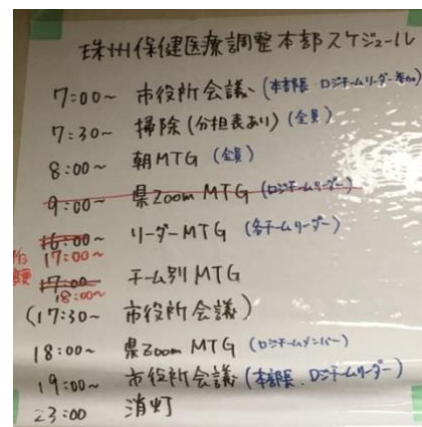 珠州保健医療調整本部スケジュール
7:00~ 市役所会議 (本部長・ロジチームリーダー参加)
7:30~ 掃除(分担表あり)(全員)
8:00~ 朝MTG (全員)
9:00~ 県Zoom MTG (ロジチームリーダー)
16:00~ リーダーMTG (各チームリーダー)
17:00~
17:00~ チーム別MTG
18:00~
(17:30~ 市役所会議)
18:00~ 県Zoom MTG (ロジチームメンバー)
19:00~ 市役所会議(本部長、ロジチームリーダー)
23:00 消灯